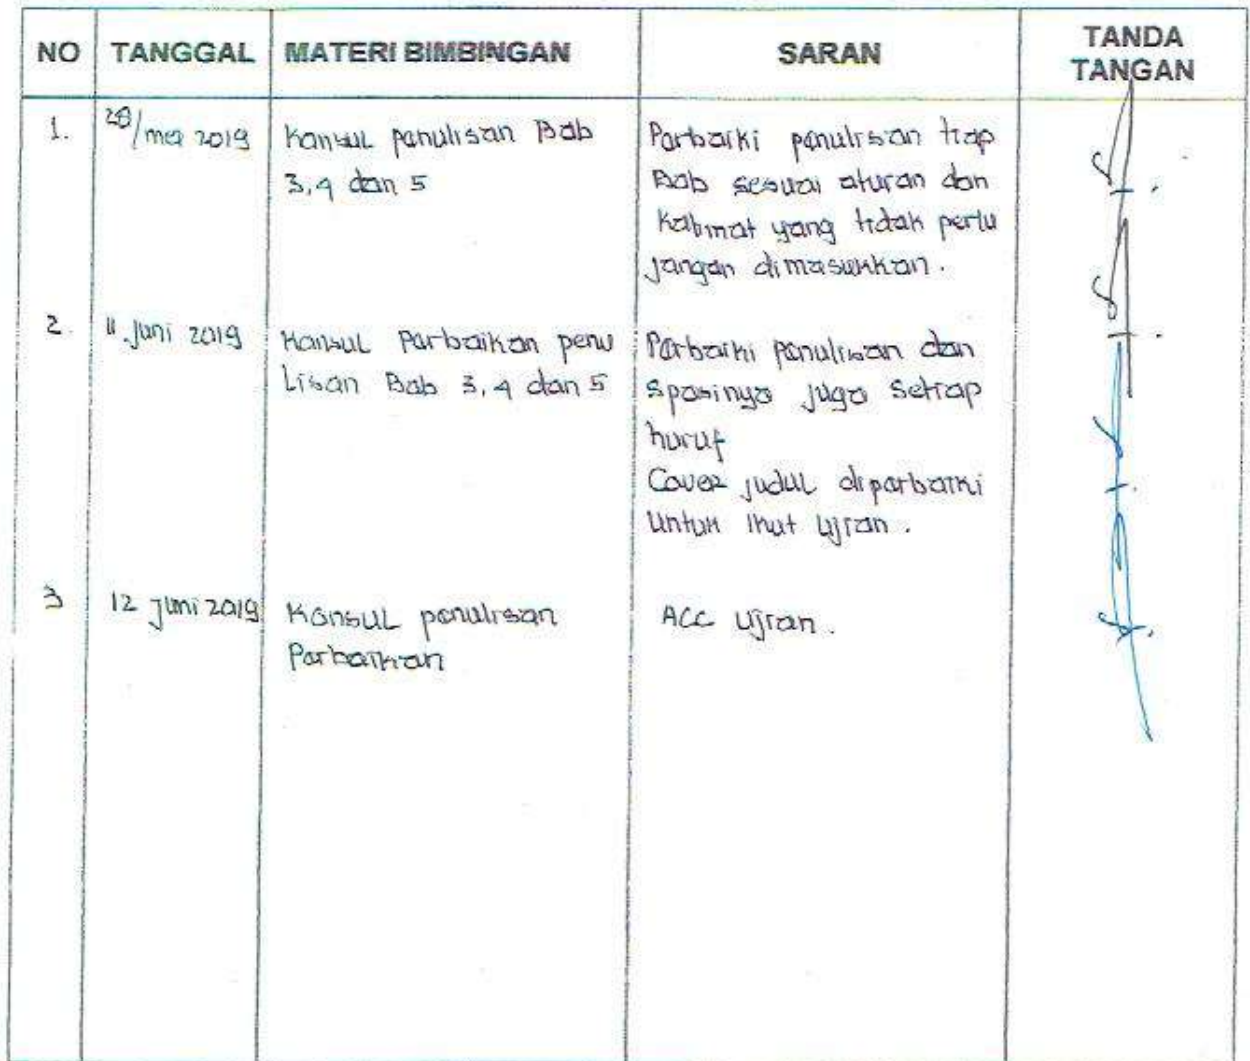 NO TANGGAL MATERI BIMBINGAN SARAN TANDA TANGAN
1. 28/mei 2019 Konsul penulisan Bab
3,4 dan 5
Perbaiki penulisan tiap
Bab sesuai aturan dan
Kalimat yang tidak perlu
jangan dimasukkan.
2. 11 Juni 2019 Konsul Perbaikan penu
lisan Bab 3,4 dan 5
Perbaiki penulisan dan
spasinya juga setiap
huruf
Cover judul diperbaiki
untuk ikut ujian.
3 12 Juni 2019 Konsul penulisan
Perbaikan
ACC ujian.